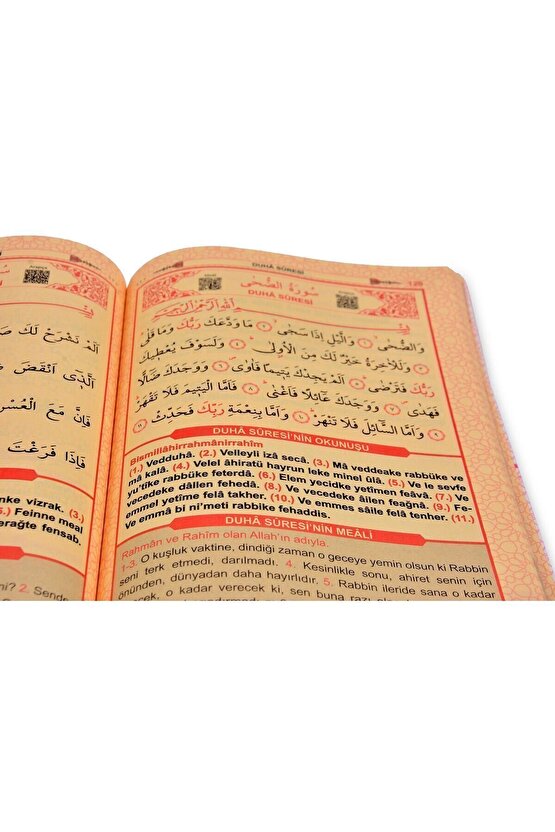 DUHÂ SÛRESİ
128
سُورَةُ الضُّحٰى
DUHÂ SÛRESİ
وَالضُّحٰىۙ ﴿١﴾ وَالَّيْلِ اِذَا سَجٰىۙ ﴿٢﴾ مَا وَدَّعَكَ رَبُّكَ وَمَا قَلٰىۜ
﴿٣﴾ وَلَلْاٰخِرَةُ خَيْرٌ لَكَ مِنَ الْاُو۫لٰىۜ ﴿٤﴾ وَلَسَوْفَ يُعْط۪يكَ
رَبُّكَ فَتَرْضٰىۜ ﴿٥﴾ اَلَمْ يَجِدْكَ يَت۪يمًا فَاٰوٰىۖ ﴿٦﴾ وَوَجَدَكَ ضَٓالًّا
فَهَدٰىۖ ﴿٧﴾ وَوَجَدَكَ عَٓائِلًا فَاَغْنٰىۜ ﴿٨﴾ فَاَمَّا الْيَت۪يمَ فَلَا تَقْهَرْۜ
﴿٩﴾ وَاَمَّا السَّٓائِلَ فَلَا تَنْهَرْۜ ﴿١٠﴾ وَاَمَّا بِنِعْمَةِ رَبِّكَ فَحَدِّثْ ﴿١١﴾
DUHÂ SÛRESİ'NİN OKUNUŞU
Bismillâhirrahmânirrahîm
(1.) Vedduhâ. (2.) Velleyli izâ secâ. (3.) Mâ veddeake rabbüke ve
mâ kalâ. (4.) Velel âhiratü hayrun leke minel ûlâ. (5.) Ve le sevfe
yu'tîke rabbüke feterdâ. (6.) Elem yecidke yetîmen feâvâ. (7.) Ve
vecedeke dâllen fehedâ. (8.) Ve vecedeke âilen feağnâ. (9.) Fe-
emmel yetîme felâ takher. (10.) Ve emmes sâile felâ tenher. (11.)
Ve emmâ bi ni'meti rabbike fehaddis.
DUHÂ SÛRESİ'NİN MEÂLİ
Rahmân ve Rahîm olan Allah'ın adıyla.
1-3. O kuşluk vaktine, dindiği zaman o geceye yemin olsun ki Rabbin
seni terk etmedi, darılmadı. 4. Kesinlikle sonu, ahiret senin için
önünden, dünyadan daha hayırlıdır. 5. Rabbin ileride sana o kadar
o kadar verecek ki, sen buna razı
اَلَمْ نَشْرَحْ لَكَ
اَلَّذ۪ٓي اَنْقَضَ
فَاِنَّ مَعَ الْعُسْرِ
فَاِذَا فَرَغْتَ
nke vizrak. (3.)
5.) Feinne meal
erağte fensab.
2. Sende